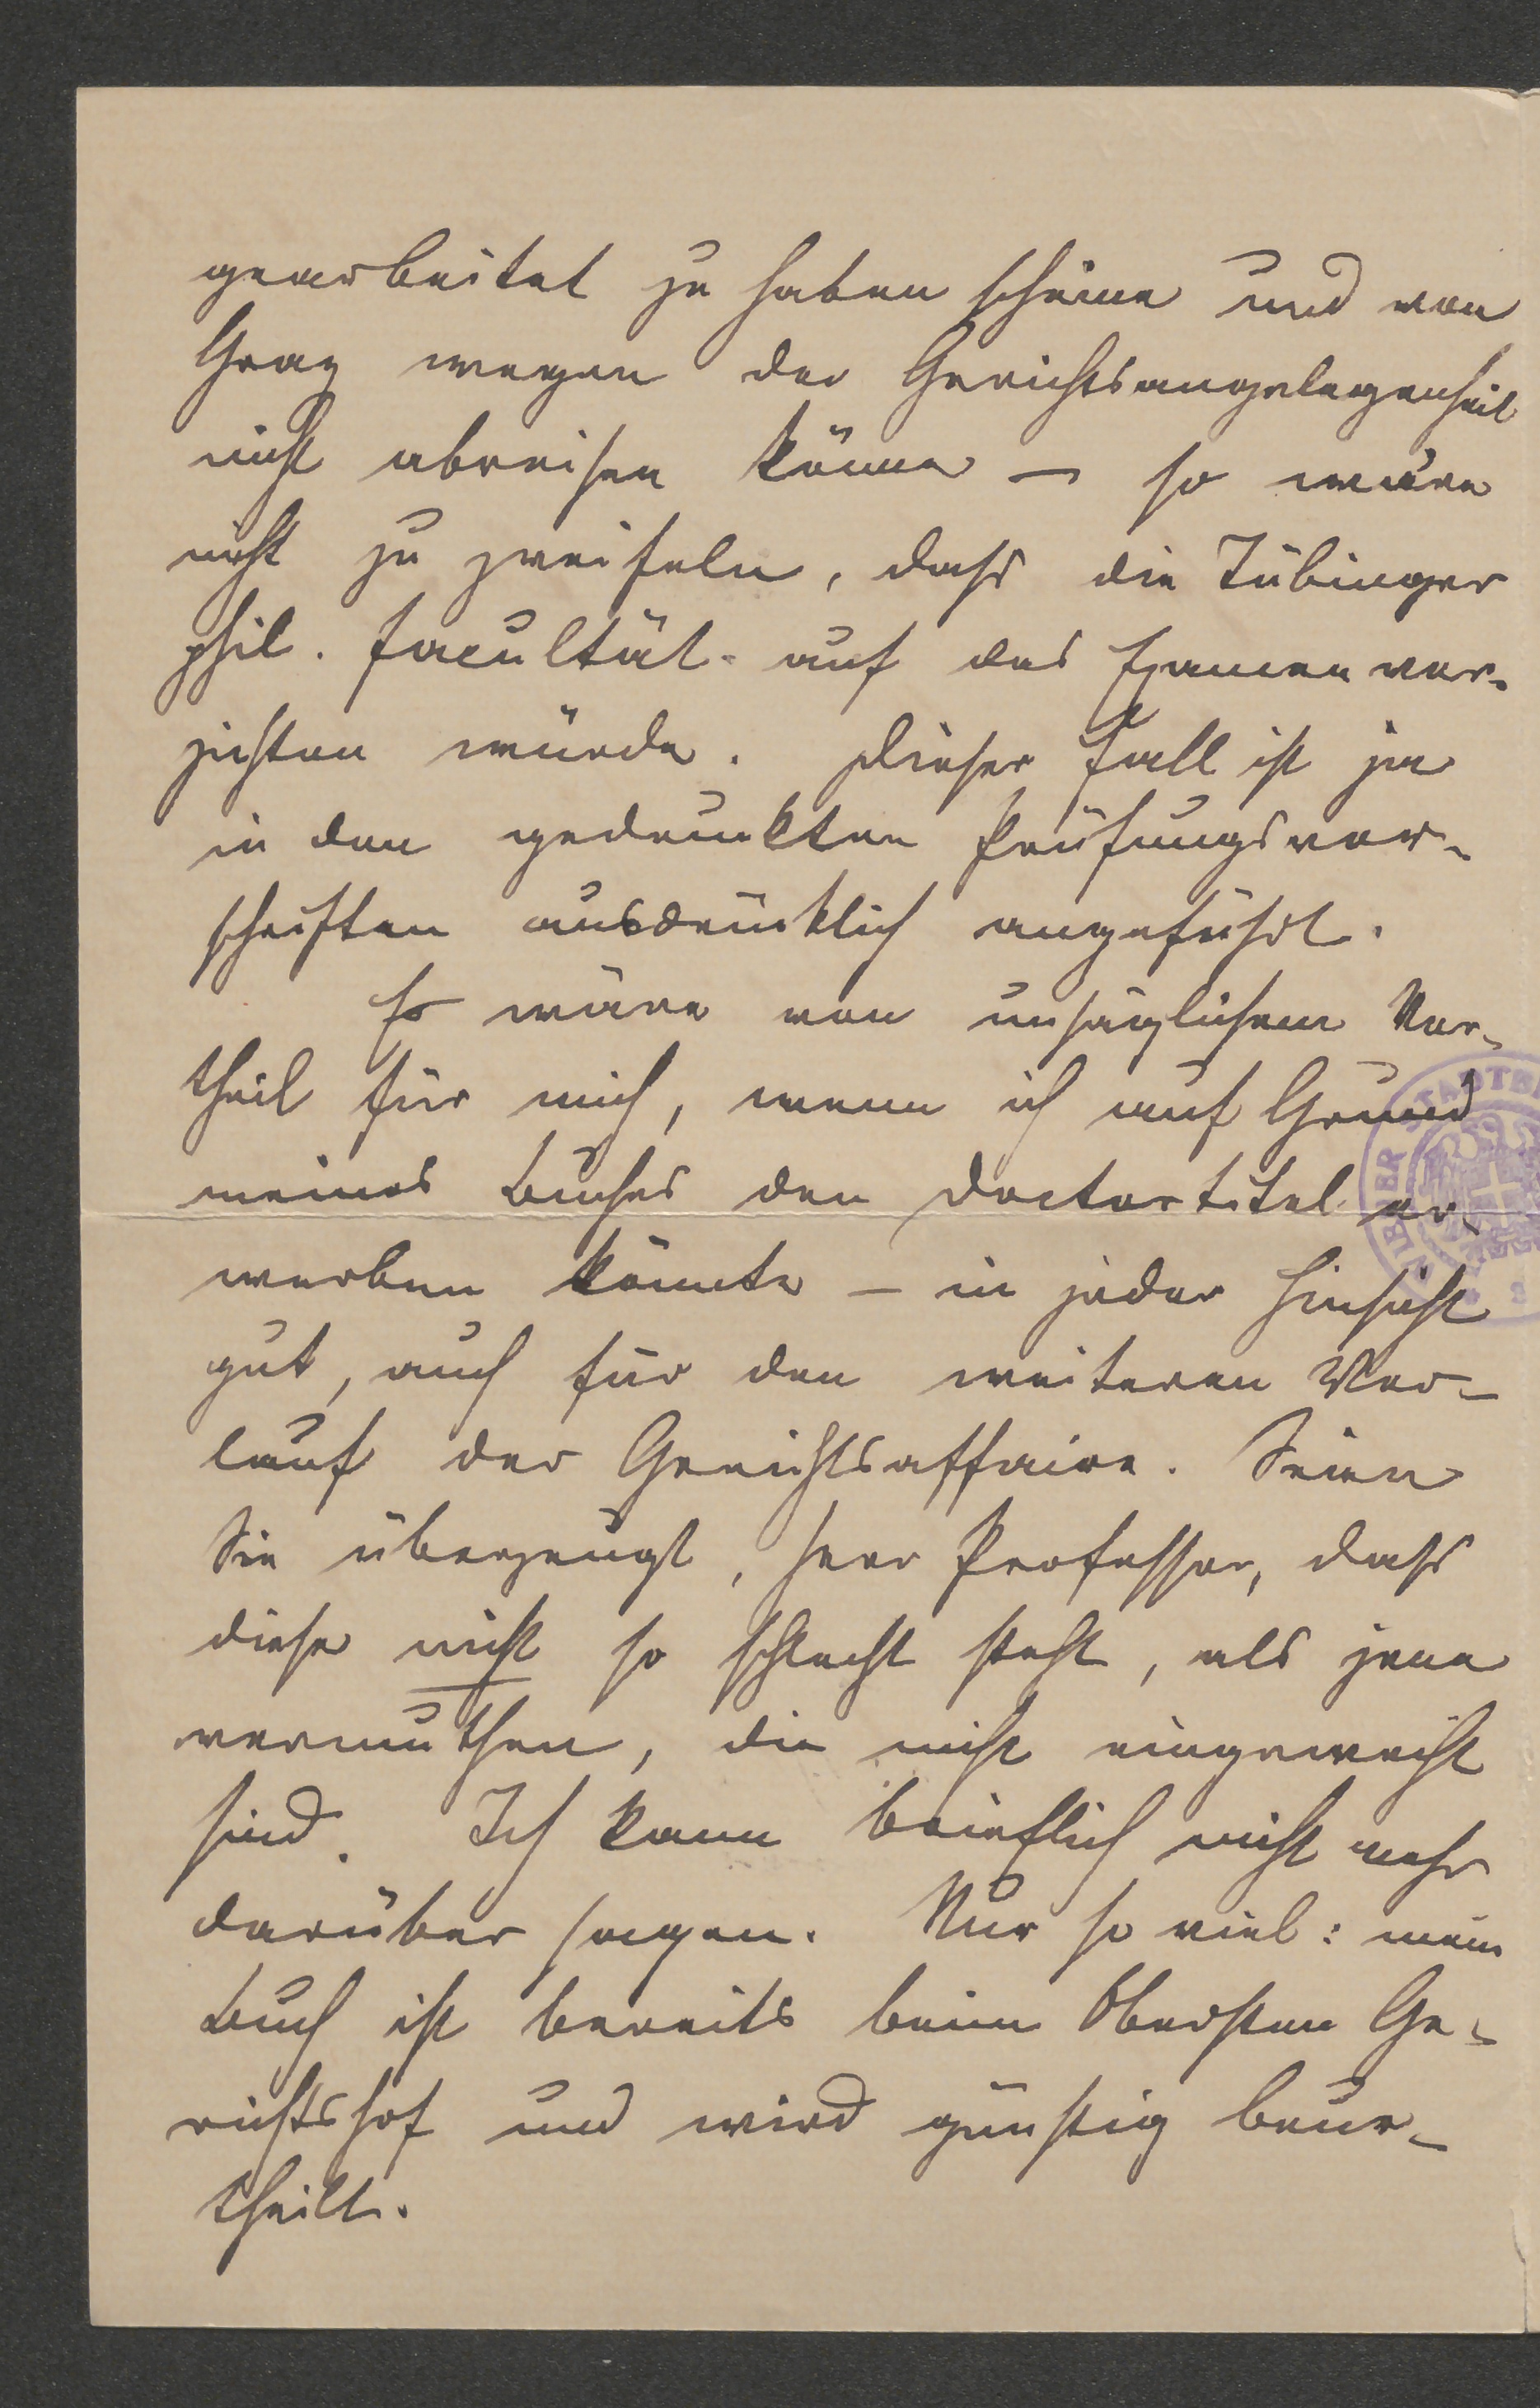 gearbeitet zu haben scheine und von
Graz wegen der Gerichtsangelegenheit
nicht abreisen könne – so wäre
nicht zu zweifeln, dass die Tübinger
phil. Facultät auf das Examen ver-
zichten würde. Dieser Fall ist ja
in den gedruckten Prüfungsvor-
schriften ausdrücklich angeführt.
Es wäre von unsäglichem Vor-
theil für mich, wenn ich auf Grund
meines Buches den Doctortitel er-
werben könnte – in jeder Hinsicht
gut, auch für den weiteren Ver-
lauf der Gerichtsaffaire. Seien
Sie überzeugt, Herr Professor, dass
diese nicht so schlecht steht, als jene
vermuthen, die nicht eingeweiht
sind. Ich kann brieflich nicht mehr
darüber sagen. Nur so viel: mein
Buch ist bereits beim Obersten Ge-
richtshof und wird günstig beur-
theilt.